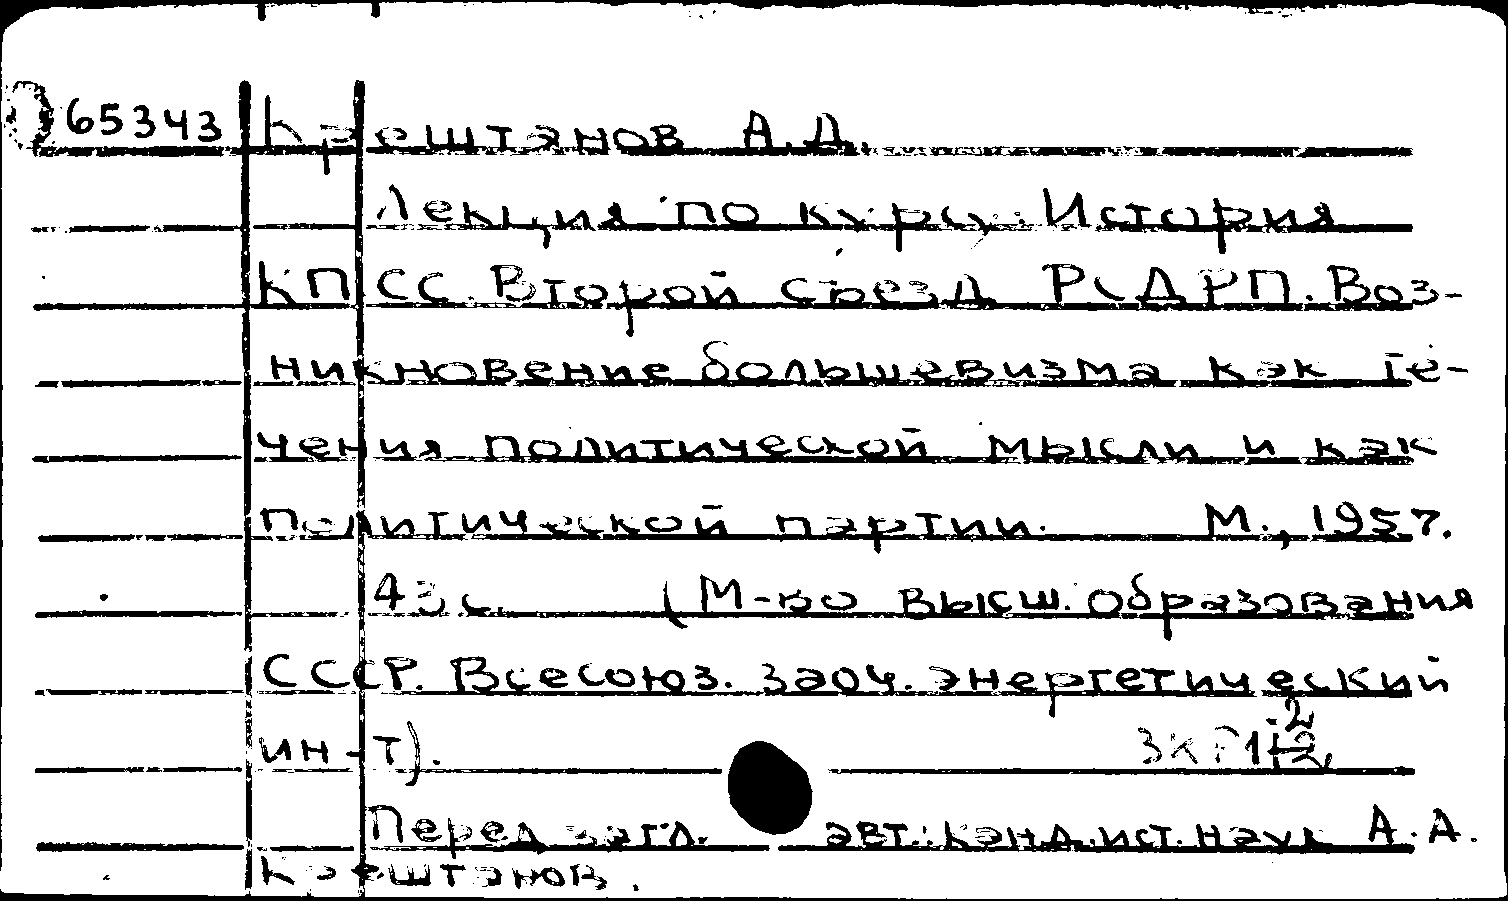 65343 Крештанов А.Д.
Лекция по курсу: История
КПСС. Второй съезд РСДРП. Воз-
никновение большевизма как те-
чения политической мысли и как
политической партии. М., 1957.
43 с. (М-во высш. образования
СССР. Всесоюз. заоч. энергетический
ин-т).
Перед загл. авт.: канд. ист. наук А.А.
Крештанов.